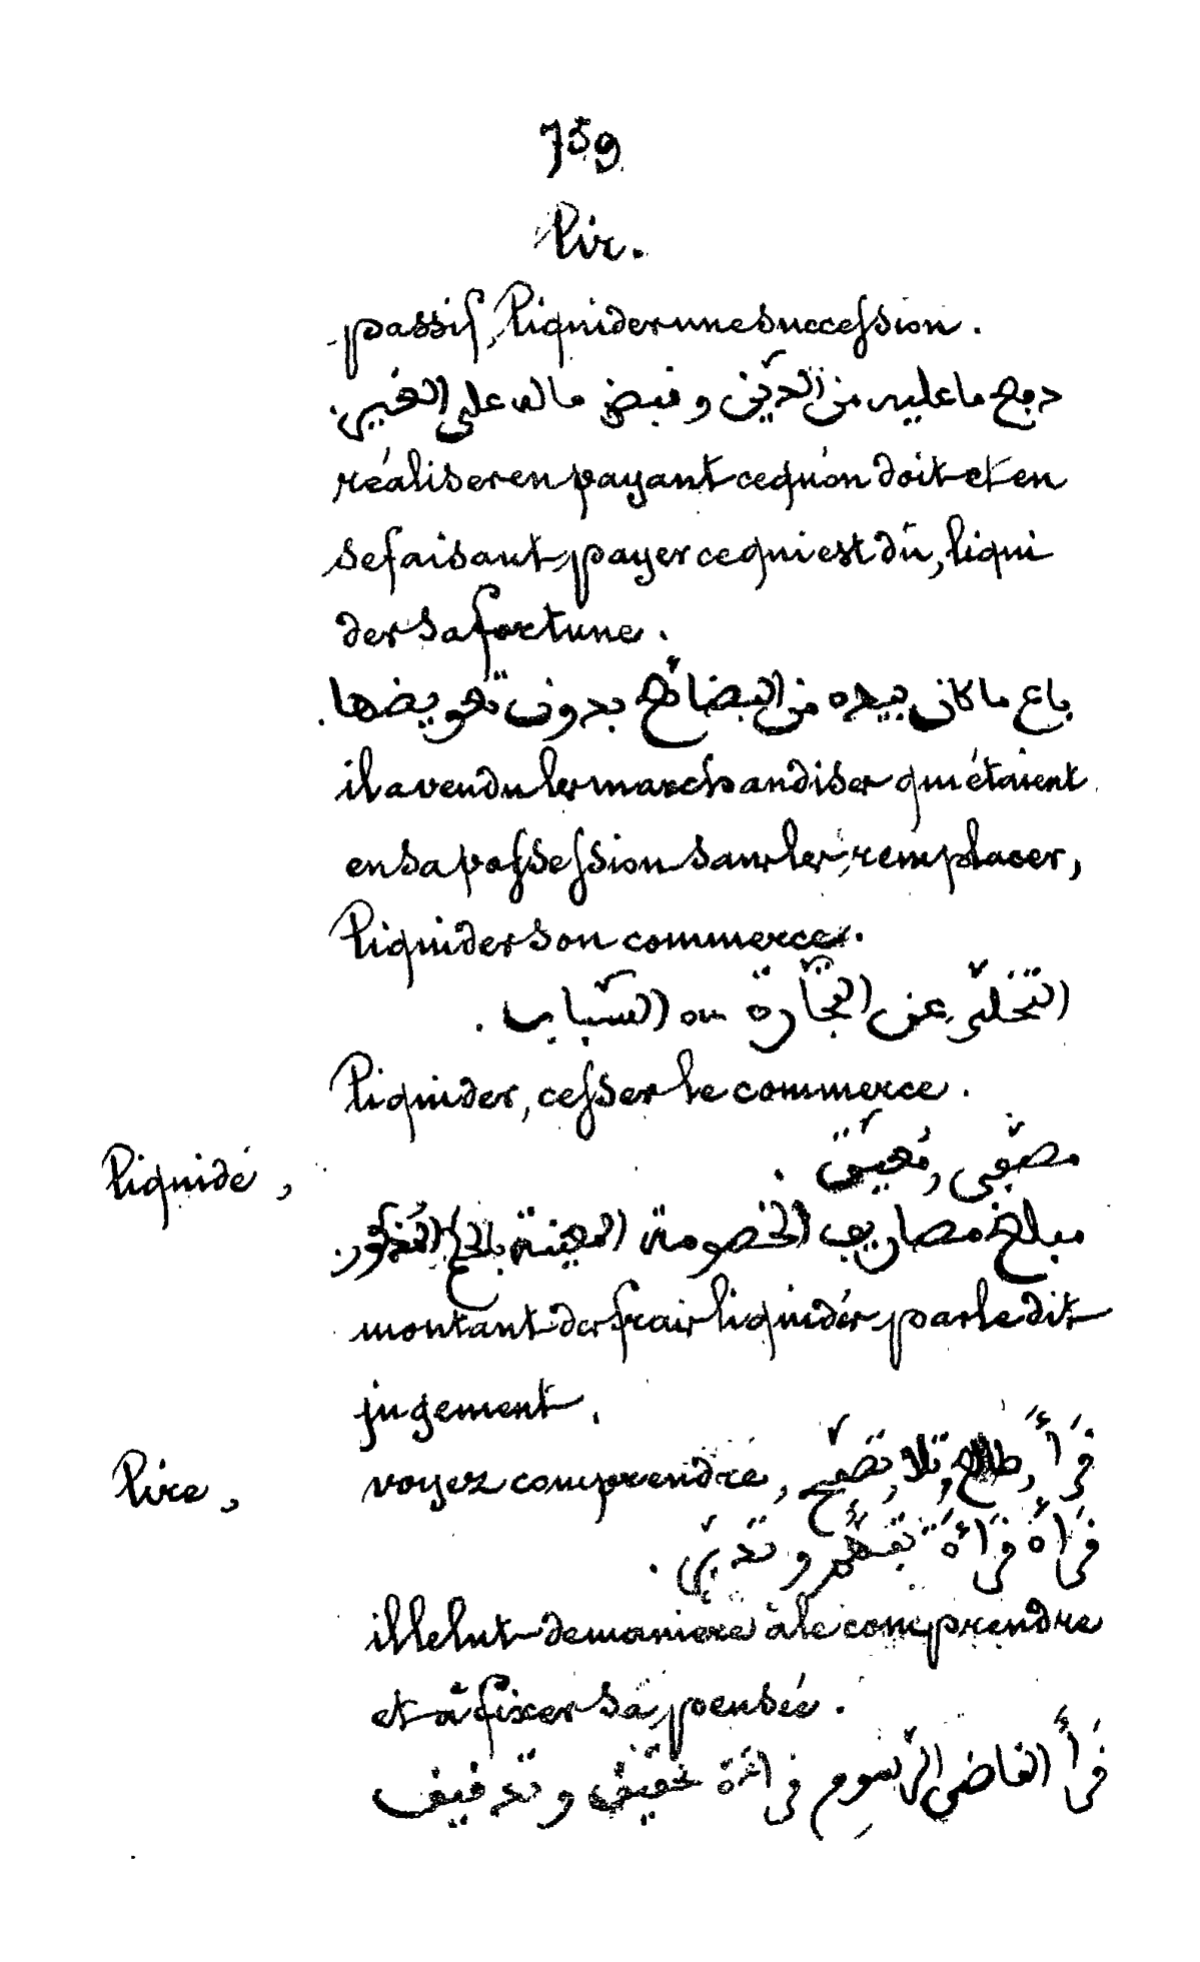 759
Lir.
passif, Liquider une succession.
دفع ما عليه من الدّين و قبض ماله على الغير.
réaliser en payant ce qu'on doit et en
se faisant payer ce qui est dû, liqui
der sa fortune.
باع ما كان بيده من البضائع بدون تعويضها.
il a vendu les marchandises qui étaient
en sa possession sans les remplacer,
Liquider son commerce.
التّخلّي عن التّجارة ou السّباب.
Liquider, cesser le commerce.
Liquidé, مصفّى, مُعيّن.
مبلغ مصاريف الخصومة المعينة بالحكم المذكور.
montant des frais liquidés par le dit
jugement.
Lire, voyez comprendre, قَرَأَ, طالع, تلا, تصفّح
قَرَأهُ قَرَاءَةَ تَفَهُّم و تَدَبُّر.
il le lut de manière à le comprendre
et à fixer sa pensée.
قَرَأَ القاضي الرّسوم قراءة تحقيق و تدقيق